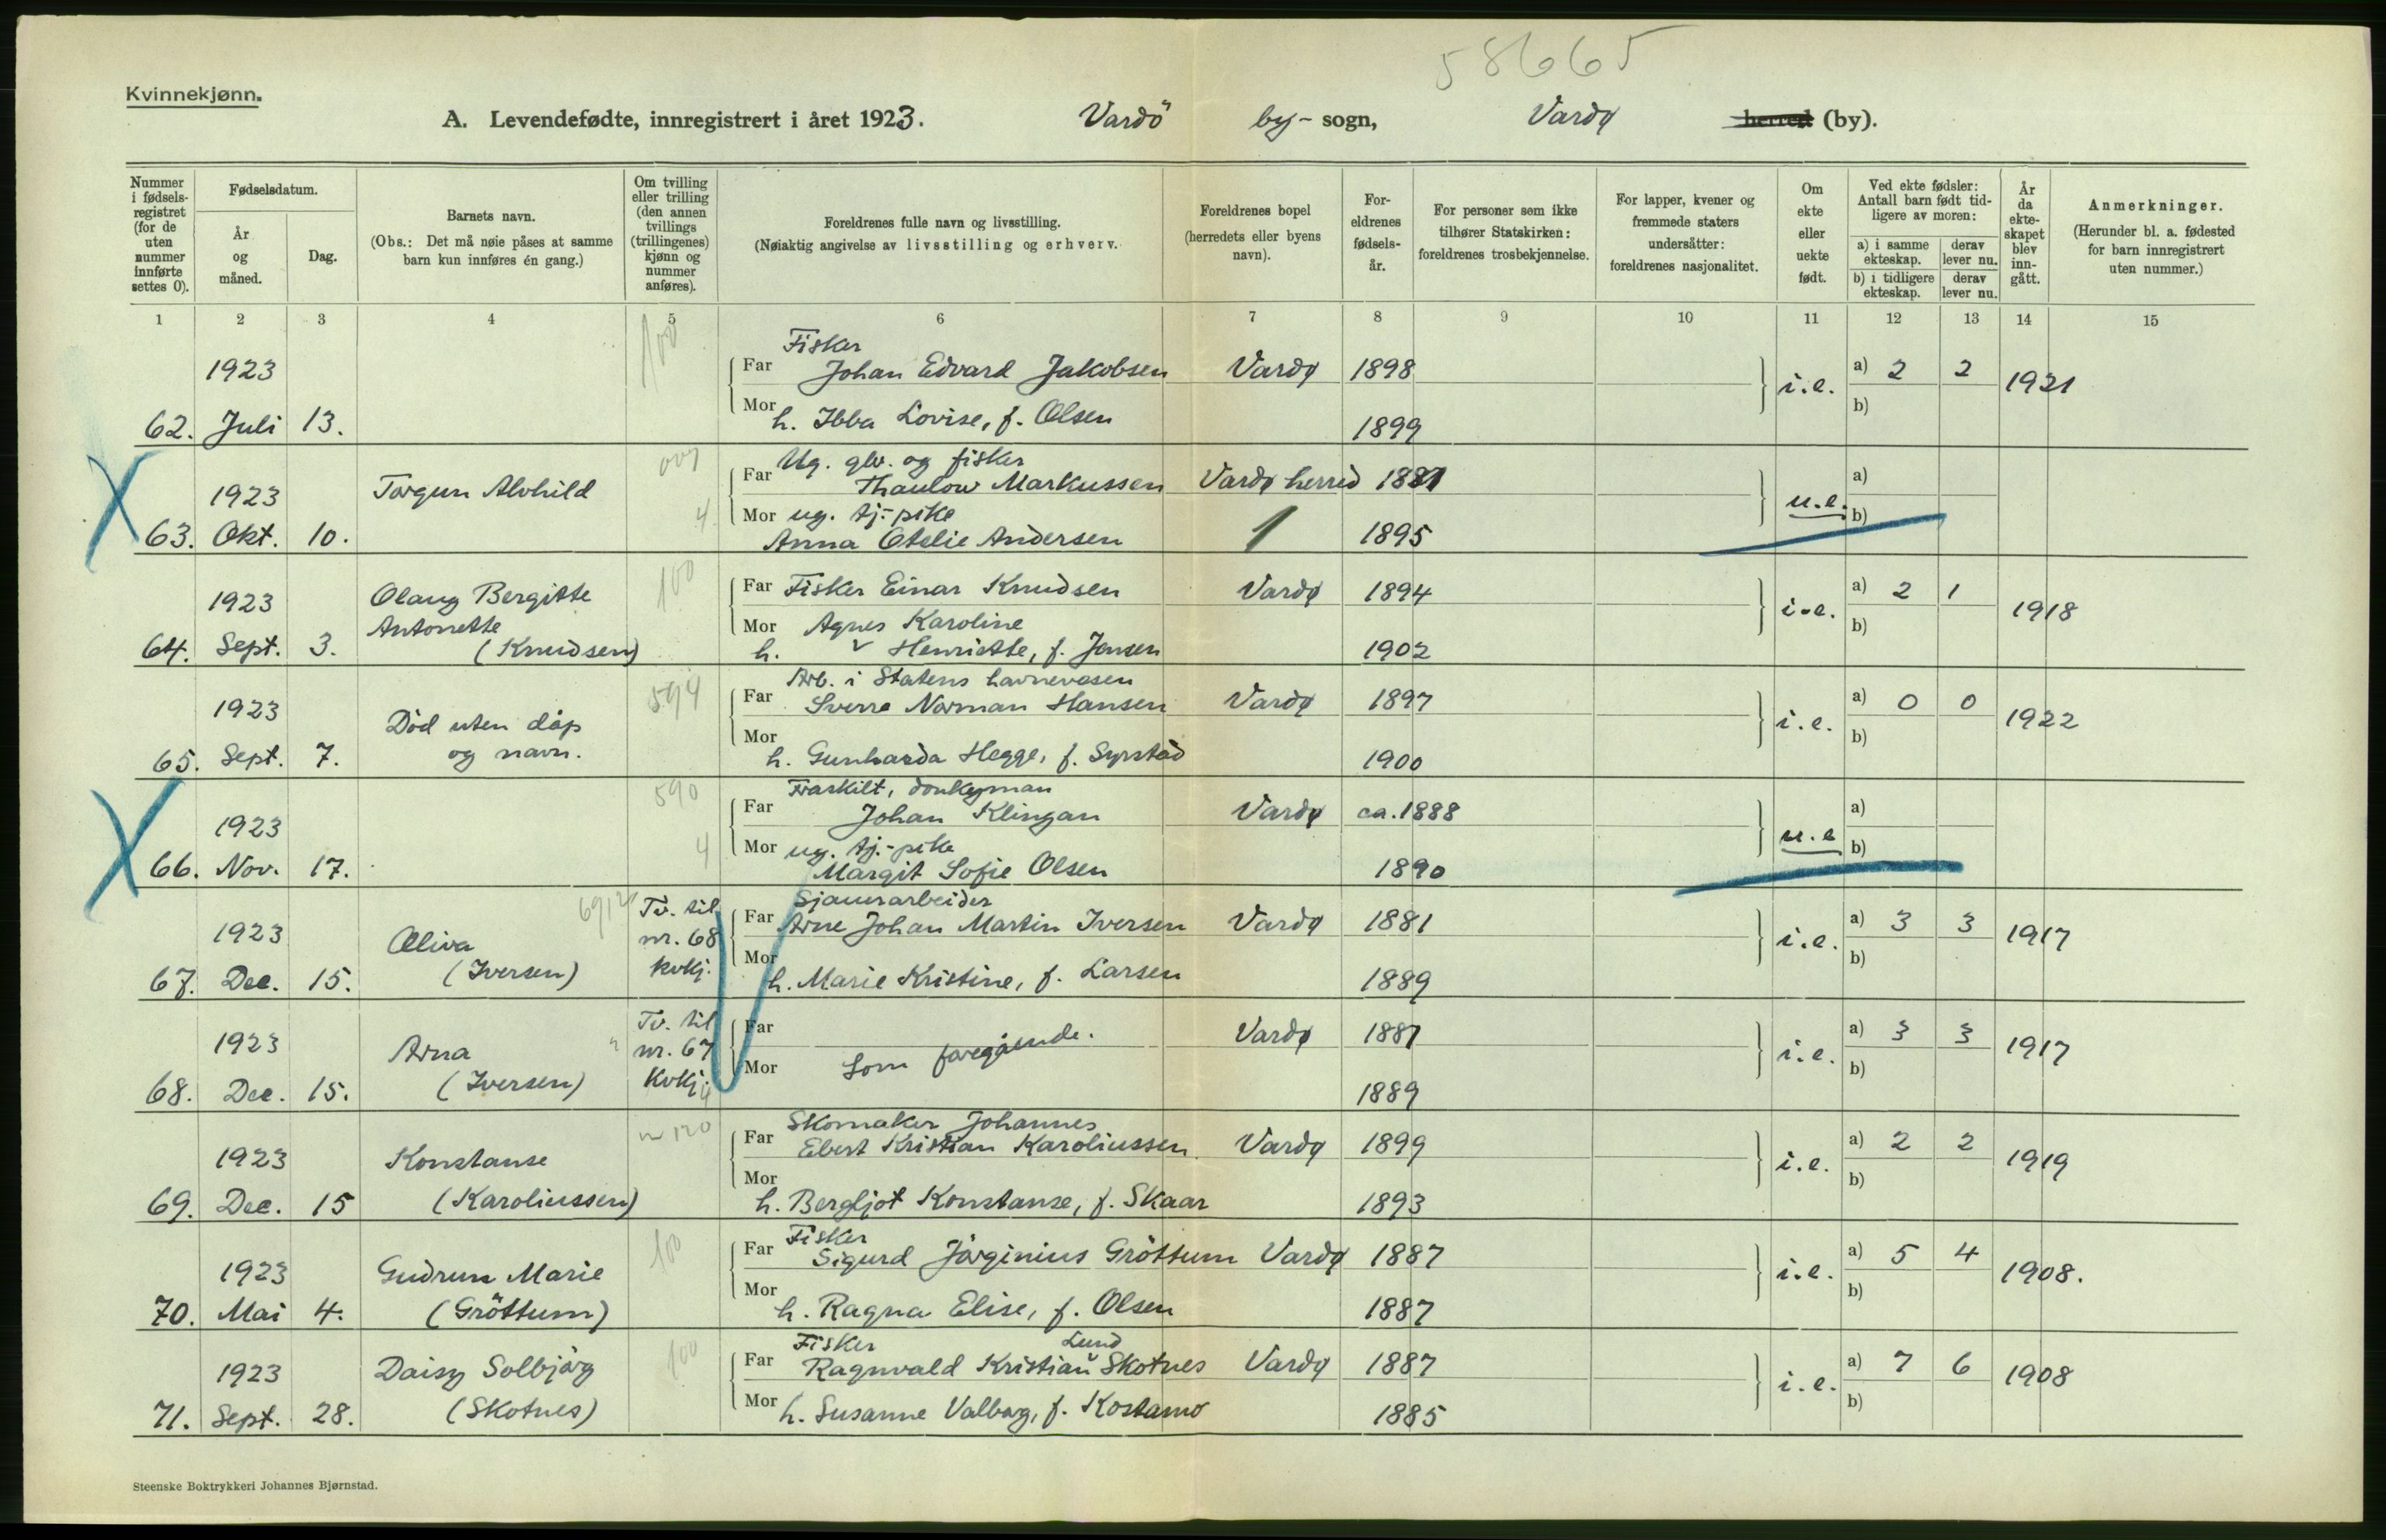 58665
Kvinnekjønn.
A. Levendefødte, innregistrert i året 1923. Vardö by- sogn, Vardø herred (by).
Nummer i fødselsregistret (for de uten nummer innførte settes 0).
Fødselsdatum.
År og måned.
Dag.
Barnets navn.
(Obs.: Det må nøie påses at samme barn kun innføres én gang.)
Om tvilling eller trilling (den annen tvillings (trillingenes) kjønn og nummer anføres).
Foreldrenes fulle navn og livsstilling.
(Nøiaktig angivelse av livsstilling og erhverv.
Foreldrenes bopel (herredets eller byens navn).
Foreldrenes fødselsår.
For personer som ikke tilhører Statskirken: foreldrenes trosbekjennelse.
For lapper, kvener og fremmede staters undersåtter: foreldrenes nasjonalitet.
Om ekte eller uekte født.
Ved ekte fødsler: Antall barn født tidligere av moren:
a) i samme ekteskap. derav lever nu.
b) i tidligere ekteskap. derav lever nu.
År da ekteskapet blev inngått.
Anmerkninger.
(Herunder bl. a. fødested for barn innregistrert uten nummer.)
1 2 3 4 5 6 7 8 9 10 11 12 13 14 15
100
Fisker
1923 Far Johan Edvard Jakobsen Vardø 1898 i.e. a) 2 2 1921
62. Juli 13. Mor h. Ibba Lovise, f. Olsen 1899 b)
Ug. glv. og fisker
1923 Torgun Alvhild Far Thaulow Markussen Vardø herred 1881 a)
4 Mor ug. tj.-pike 1 u.e. b)
63. Okt. 10. Anna Otelie Andersen 1895
1923 Olaug Bergitte 100 Far Fisker Einar Knudsen Vardø 1894 i.e. a) 2 1 1918
Antonette Mor Agnes Karoline b)
64. Sept. 3. (Knudsen) h. Henriette, f. Jensen 1902
Arb. i Statens havnevesen
1923 594 Far Sverre Norman Hansen Vardø 1897 i.e. a) 0 0 1922
Död uten dåp Mor b)
65. Sept. 7. og navn. h. Gunharda Hegge, f. Syrstad 1900
Fraskilt, donkeyman
1923 590 Far Johan Klingan Vardø ca. 1888 a)
4 Mor ug. tj.-pike u.e b)
66. Nov. 17. Margit Sofie Olsen 1890
Tv. til Sjauerarbeider
1923 Oliva nr. 68 Far Arne Johan Martin Iversen Vardø 1881 i.e. a) 3 3 1917
67. Dec. 15. (Iversen) kvkj. Mor h. Marie Kristine, f. Larsen 1889 b)
Tv. til
1923 Arna nr. 67 Far Vardø 1881 i.e. a) 3 3 1917
Mor Som foregående. b)
68. Dec. 15. (Iversen) Kvkj. 1889
Skomaker Johannes
1923 Konstanse 120 Far Ebert Kristian Karoliussen Vardø 1899 i.e. a) 2 2 1919
69. Dec. 15 (Karoliussen) Mor h. Bergljot Konstanse, f. Skaar 1893 b)
Fisker
1923 Gudrun Marie 100 Far Sigurd Jörginius Gröttum Vardø 1887 i.e. a) 5 4 1908.
70. Mai 4. (Gröttum) Mor h. Ragna Elise, f. Olsen 1887 b)
Fisker Lund
1923 Daisy Solbjörg 100 Far Ragnvald Kristian Skotnes Vardø 1887 i.e. a) 7 6 1908
71. Sept. 28. (Skotnes) Mor h. Susanne Valborg, f. Kostamo 1885 b)
Steenske Boktrykkeri Johannes Bjørnstad.